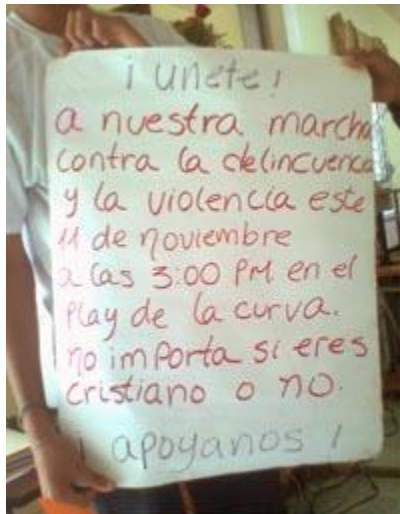 ¡ unete !
a nuestra marcha
contra la delincuencia
y la violencia este
11 de noviembre
a las 3:00 PM en el
Play de la curva.
no importa si eres
cristiano o no.
¡ apoyanos !